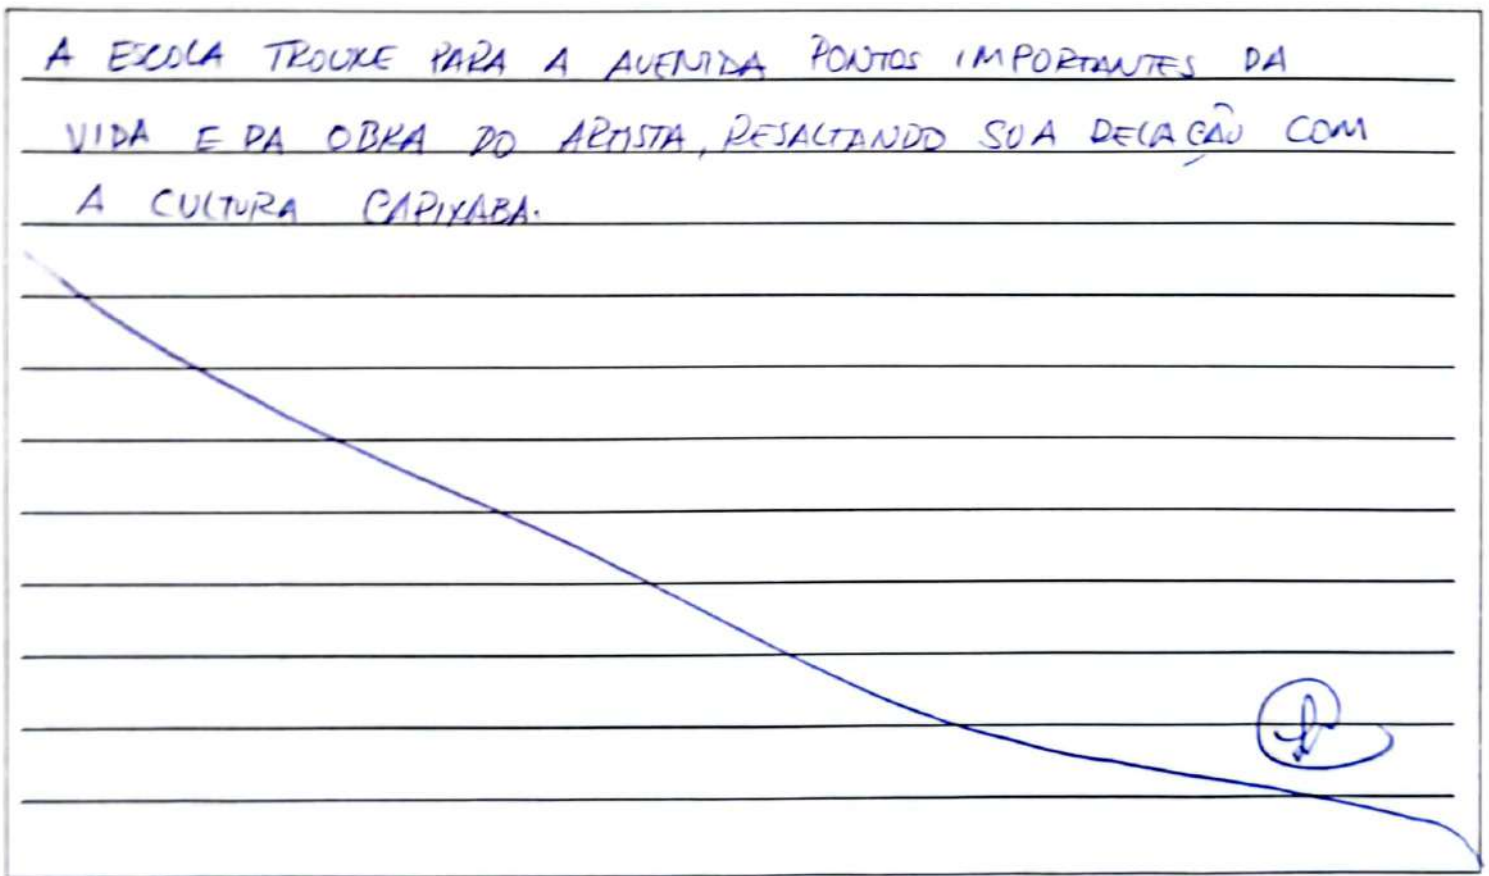 A ESCOLA TROUXE PARA A AVENIDA PONTOS IMPORTANTES DA
VIDA E DA OBRA DO ARTISTA, RESALTANDO SUA RELAÇÃO COM
A CULTURA CAPIXABA.